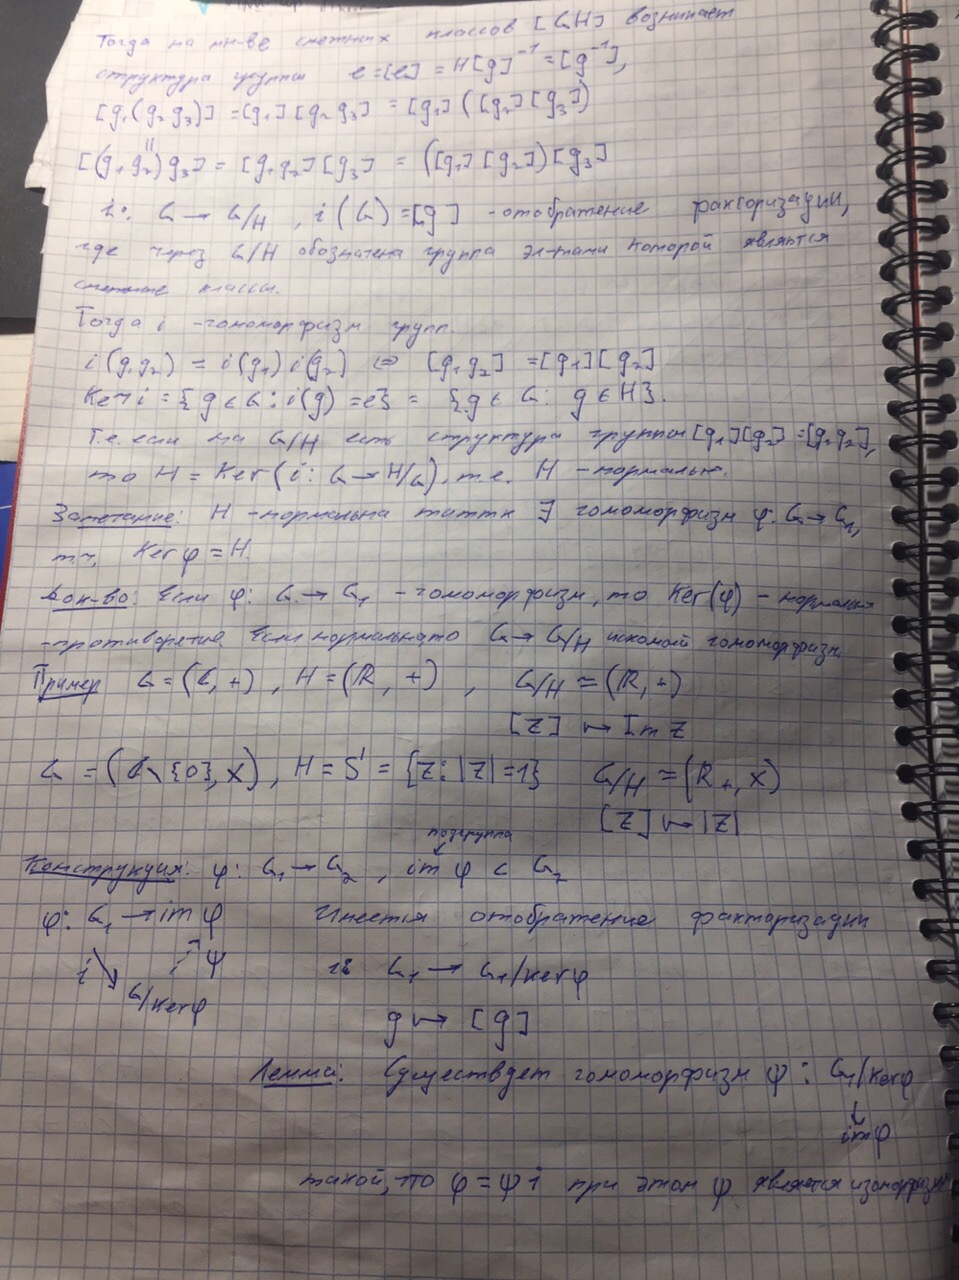 Тогда на мн-ве смежных классов [GH] возникает
структура группы e=[e] = H [g]⁻¹ = [g⁻¹],
[g₁(g₂g₃)] = [g₁][g₂g₃] = [g₁]([g₂][g₃])
||
[(g₁g₂)g₃] = [g₁g₂][g₃] = ([g₁][g₂])[g₃]
i: G → G/H , i(G) = [g] - отображение факторизации,
где через G/H обозначена группа эл-тами которой являются
смежные классы.
Тогда i - гомоморфизм групп.
i(g₁g₂) = i(g₁) i(g₂) ⇔ [g₁g₂] = [g₁][g₂]
Ker i = {g ∈ G : i(g) = e} = {g ∈ G : g ∈ H}.
Т.е. если на G/H есть структура группы [g₁][g₂] = [g₁g₂],
то H = Ker(i: G → H/G), т.е. H - нормальн.
Замечание: H - нормальна титтк ∃ гомоморфизм φ: G → G₁,
т.ч. Ker φ = H.
Док-во: Если φ: G → G₁ - гомоморфизм, то Ker(φ) - нормальн
-противоречие. Если нормальна то G → G/H искомый гомоморфизм
Пример G = (ℂ, +) , H = (ℝ, +) , G/H ≃ (ℝ, +)
[z] ↦ Im z
G = (ℂ\{0}, ×) , H = S¹ = {z: |z| = 1} G/H ≃ (ℝ₊, ×)
[z] ↦ |z|
подгруппа
Конструкция: φ: G₁ → G₂ , im φ < G₂
φ: G₁ → im φ Имеется отображение факторизации
i ψ i: G₁ → G₁/Ker φ
G/Ker φ g ↦ [g]
Лемма: Существует гомоморфизм ψ : G₁/Ker φ
↓
im φ
такой, что φ = ψ i при этом ψ является изоморфизм